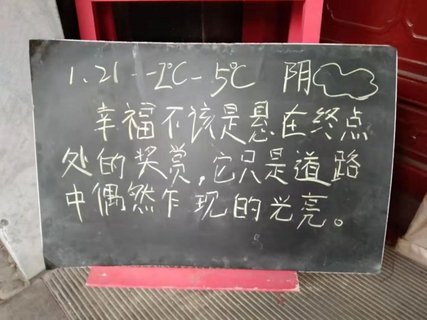 1.21 -1℃-5℃ 阴
幸福不该是悬在终点
处的奖赏，它只是道路
中偶然乍现的光亮。